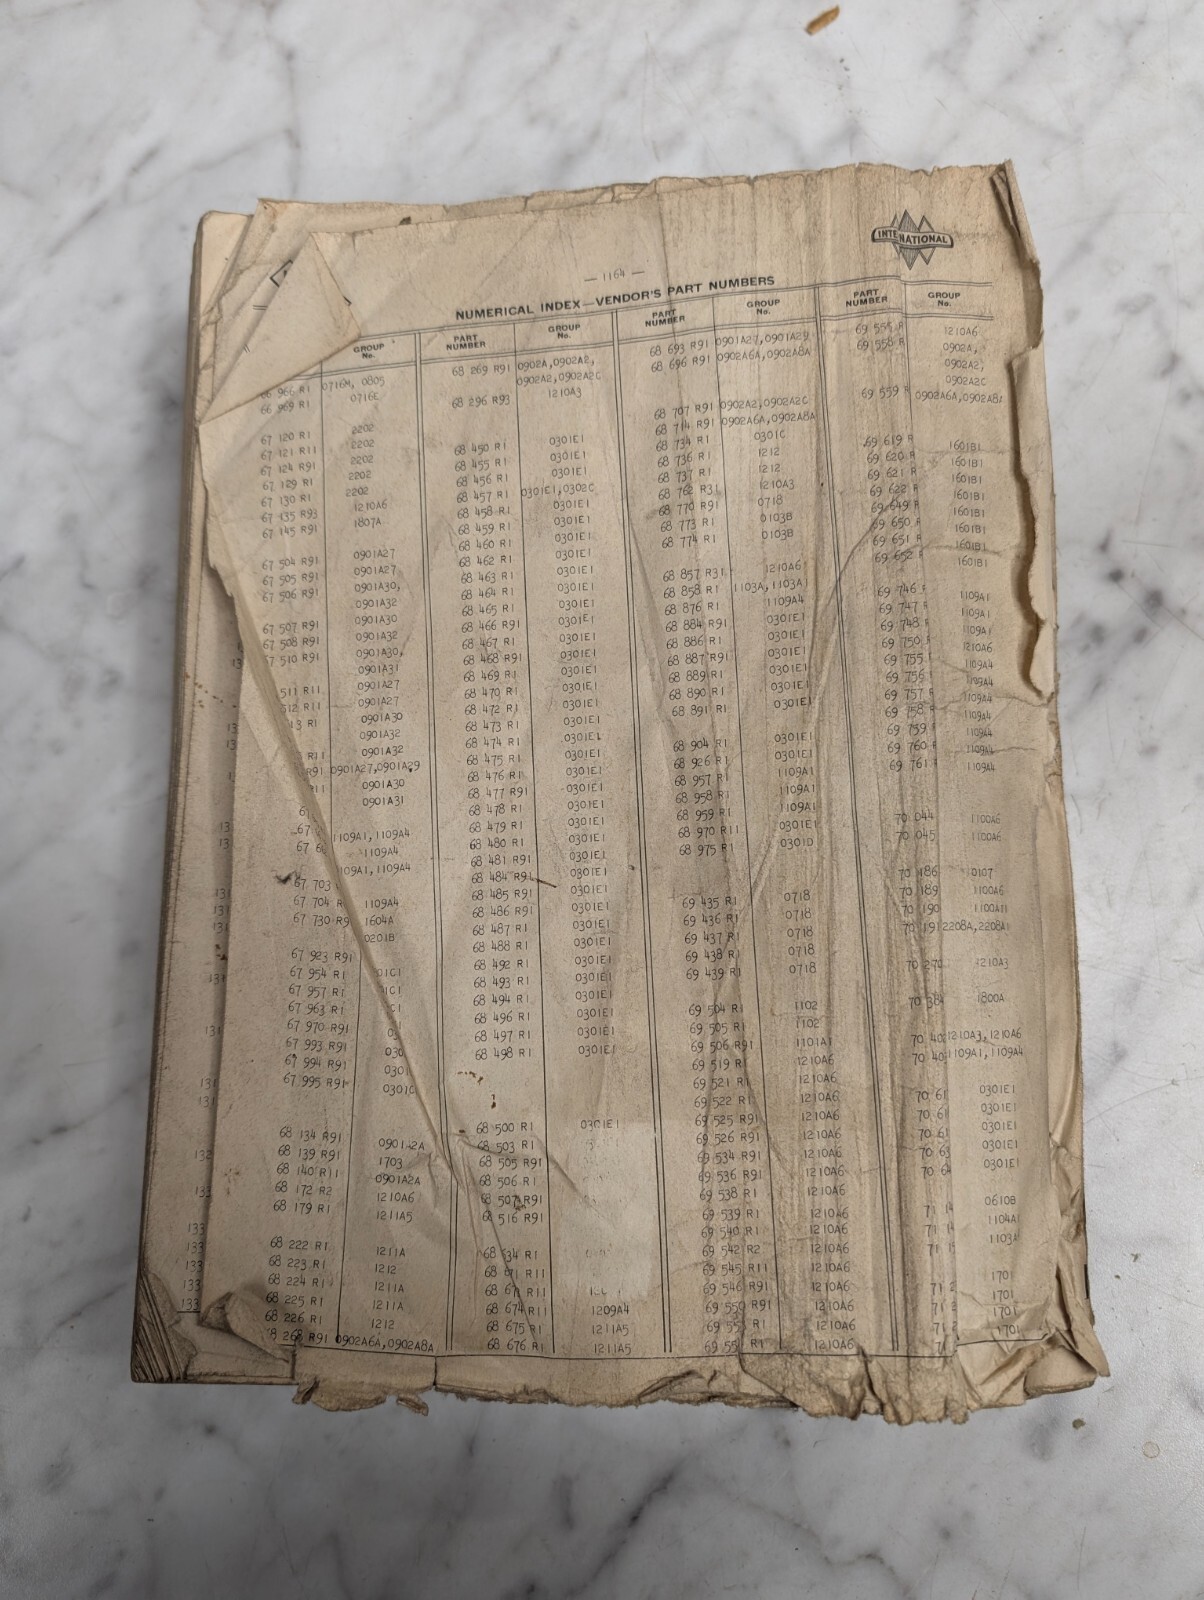 — 1164 —
INTERNATIONAL
NUMERICAL INDEX—VENDOR'S PART NUMBERS
GROUP No.
66 966 R1 0716M, 0805
66 969 R1 0716C
67 120 R1 2202
67 121 R11 2202
67 124 R91 2202
67 129 R1 2202
67 130 R1 2202
67 135 R93 1210A6
67 145 R91 1807A
67 504 R91 0901A27
67 505 R91 0901A27
67 506 R91 0901A30,
0901A32
67 507 R91 0901A30
67 508 R91 0901A32
67 510 R91 0901A30,
0901A31
511 R11 0901A27
512 R11 0901A27
R1 0901A30
0901A32
R11 0901A32
R91 0901A27,0901A29
0901A30
0901A31
67 1109A1,1109A4
67 1109A4
1109A1, 1109A4
67 703
67 704 1109A4
67 730 R9 1604A
0201B
67 923 R91
67 954 R1
67 957 R1
67 963 R1
67 970 R91
67 993 R91
67 994 R91 0301
67 995 R91 0301C
68 134 R91
68 139 R91 1703
68 140 R11 0901A2A
68 172 R2 1210A6
68 179 R1 1211A5
68 222 R1 1211A
68 223 R1 1212
68 224 R1 1211A
68 225 R1 1211A
68 226 R1 1212
68 268 R91 0902A6A,0902A8A
PART NUMBER GROUP No.
68 269 R91 0902A,0902A2,
0902A2,0902A2C
68 296 R93 1210A3
68 450 R1 0301E1
68 455 R1 0301E1
68 456 R1 0301E1
68 457 R1 0301E1,0302C
68 458 R1 0301E1
68 459 R1 0301E1
68 460 R1 0301E1
68 462 R1 0301E1
68 463 R1 0301E1
68 464 R1 0301E1
68 465 R1 0301E1
68 466 R91 0301E1
68 467 R1 0301E1
68 468 R91 0301E1
68 469 R1 0301E1
68 470 R1 0301E1
68 472 R1 0301E1
68 473 R1 0301E1
68 474 R1 0301E1
68 475 R1 0301E1
68 476 R1 0301E1
68 477 R91 0301E1
68 478 R1 0301E1
68 479 R1 0301E1
68 480 R1 0301E1
68 481 R91 0301E1
68 484 R91 0301E1
68 485 R91 0301E1
68 486 R91 0301E1
68 487 R1 0301E1
68 488 R1 0301E1
68 492 R1 0301E1
68 493 R1 0301E1
68 494 R1 0301E1
68 496 R1 0301E1
68 497 R1 0301E1
68 498 R1 0301E1
68 500 R1 0301E1
68 503 R1
68 505 R91
68 506 R1
68 507 R91
68 516 R91
68 R1
68 R11
68 R11
68 674 R11 1209A4
68 675 R1 1211A5
68 676 R1 1211A5
PART NUMBER GROUP No.
68 693 R91 0901A27,0901A29
68 696 R91 0902A6A,0902A8A
68 707 R91 0902A2,0902A2C
68 714 R91 0902A6A,0902A8A
68 734 R1 0301C
68 736 R1 1212
68 737 R1 1212
68 762 R31 1210A3
68 770 R91 0718
68 773 R1 0103B
68 774 R1 0103B
68 857 R31 1210A6
68 858 R1 1103A,1103A1
68 876 R1 1109A4
68 884 R91 0301E1
68 886 R1 0301E1
68 887 R91 0301E1
68 889 R1 0301E1
68 890 R1 0301E1
68 891 R1 0301E1
68 904 R1 0301E1
68 926 R1 0301E1
68 957 R1 1109A1
68 958 R1 1109A1
68 959 R1 1109A1
68 970 R11 0301E1
68 975 R1 0301D
69 435 R1 0718
69 436 R1 0718
69 437 R1 0718
69 438 R1 0718
69 439 R1 0718
69 504 R1 1102
69 505 R1 1102
69 506 R91 1101A1
69 519 R1 1210A6
69 521 R1 1210A6
69 522 R1 1210A6
69 525 R91 1210A6
69 526 R91 1210A6
69 534 R91 1210A6
69 536 R91 1210A6
69 538 R1 1210A6
69 539 R1 1210A6
69 540 R1 1210A6
69 542 R2 1210A6
69 545 R11 1210A6
69 546 R91 1210A6
69 550 R91 1210A6
69 55 R1 1210A6
69 55 R1 1210A6
PART NUMBER GROUP No.
69 555 R 1210A6
69 558 R 0902A,
0902A2,
0902A2C
69 559 R 0902A6A,0902A8A
69 619 R 1601B1
69 620 R 1601B1
69 621 R 1601B1
69 622 R 1601B1
69 649 R 1601B1
69 650 1601B1
69 651 1601B1
69 652 1601B1
69 746 1109A1
69 747 1109A1
69 748 1109A1
69 750 1210A6
69 755 1109A4
69 756 1109A4
69 757 1109A4
69 758 1109A4
69 759 1109A4
69 760 1109A4
69 761 1109A4
70 044 1100A6
70 045 1100A6
70 186 0107
70 189 1100A6
70 190 1100A11
70 191 2208A,2208A1
70 270 1210A3
70 384 1800A
70 40 1210A3,1210A6
70 40 1109A1,1109A4
70 61 0301E1
70 61 0301E1
70 61 0301E1
70 63 0301E1
70 64 0301E1
71 0610B
71 1104A1
71 1103A
71 2 1701
71 2 1701
71 2 1701
71 2 1701